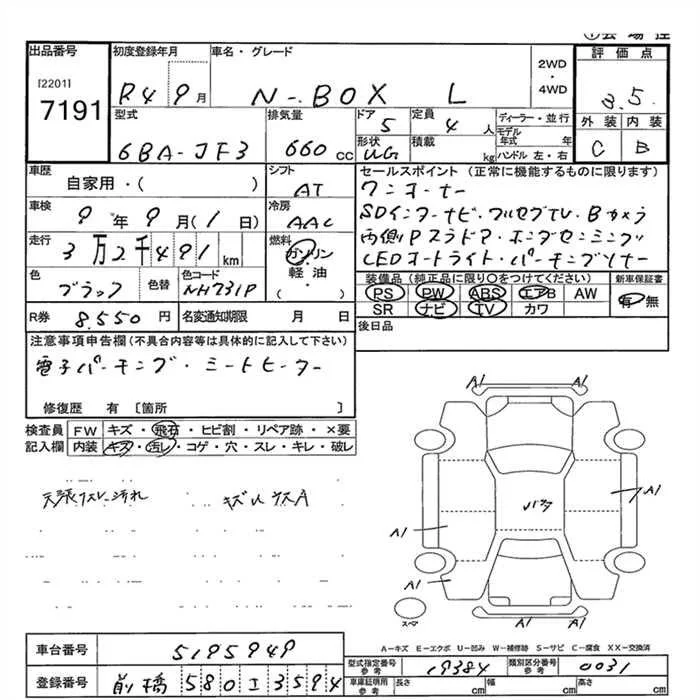 出品番号
[2201]
7191
初度登録年月
R4 9月
車名・グレード
N-BOX L
2WD
・
4WD
評価点
3.5
外装 内装
C B
型式
6BA-JF3
排気量
660 cc
ドア
5
定員
4 人
形状
UG
積載
kg
ディーラー・並行
モデル年式 年
ハンドル 左・右
車歴
自家用・( )
シフト
AT
車検
9年9月(1日)
冷房
AAC
走行
3万2千491km
燃料
ガソリン
軽油
( )
色
ブラック
色替
色コード
NH731P
R券
8,550円
名変通知期限 月 日
セールスポイント (正常に機能するものに限ります)
ワンオーナー
SDインターナビ・フルセグTV・Bカメラ
両側Pスラドア・ホンダセンシング
LEDオートライト・パーキングソナー
装備品 (純正品に限り○をつけてください)
新車保証書
PS PW ABS エアB AW
有・無
SR ナビ TV カワ
後日品
注意事項申告欄(不具合内容等は具体的に記入して下さい)
電子パーキング・シートヒーター
修復歴 有 [箇所 ]
検査員 FW キズ・飛石・ヒビ割・リペア跡・×要
記入欄 内装 キズ・汚レ・コゲ・穴・スレ・キレ・破レ
天張リスレ汚れ
A1 A1
A1
A1
A1
A1 A1
スマ
A-キズ E-エクボ U-凹み W-補修跡 S-サビ C-腐食 XX-交換済
車台番号
5195949
登録番号
前橋 580 I 3594
型式指定番号
参考
19384
類別区分番号
参考
0031
車庫証明用
参考
長さ cm
幅 cm
高さ cm